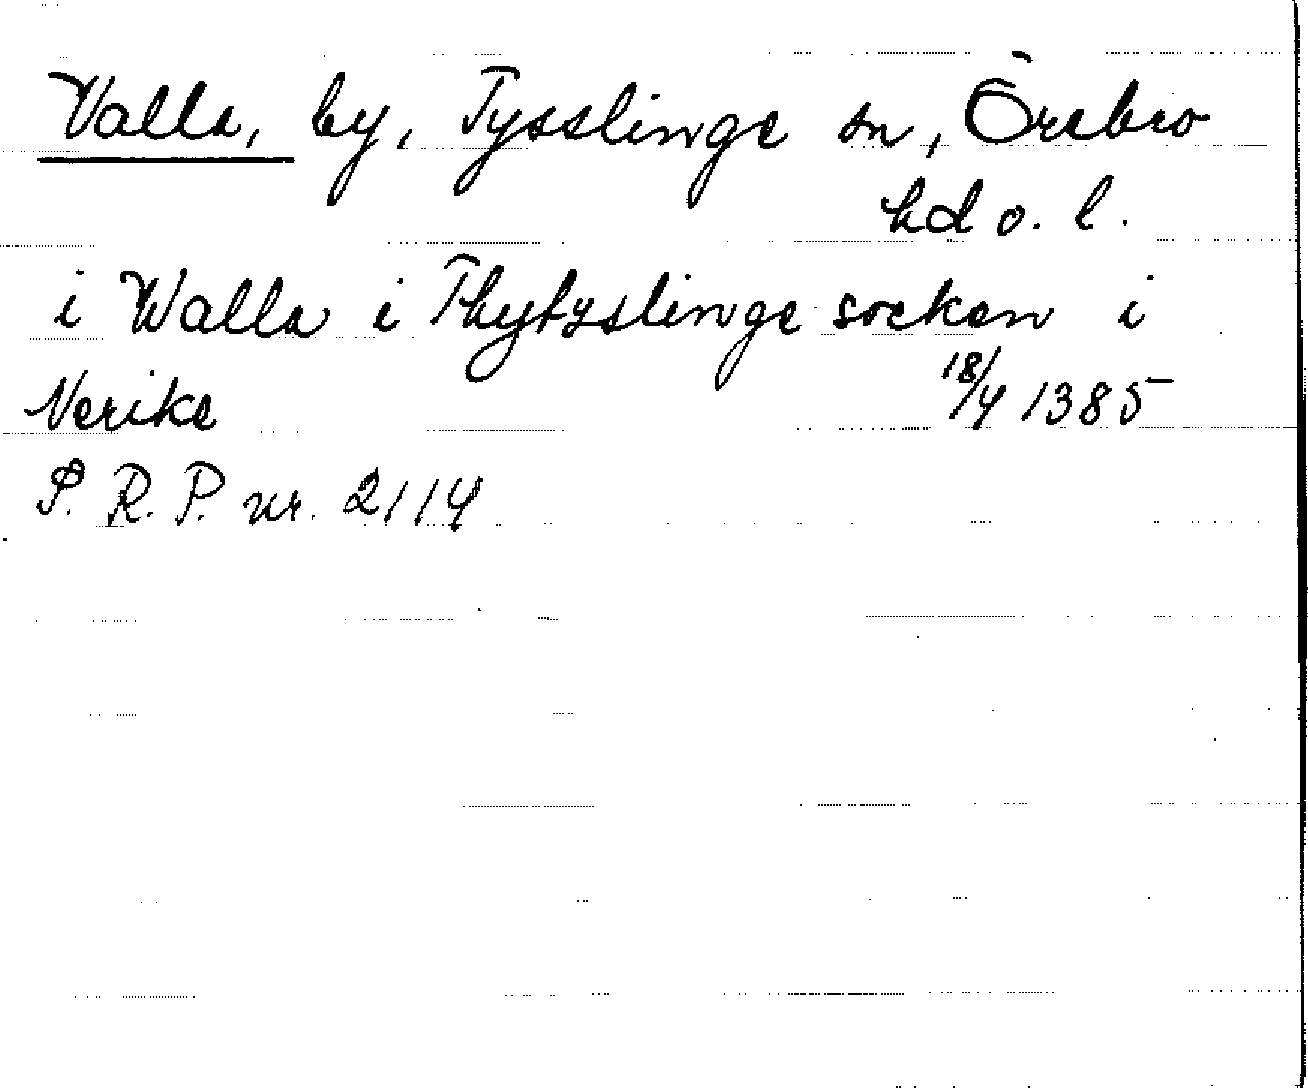 Valla, by, Tysslinge sn, Örebro
hd o. l.
i Walla i Thytzslinge socken i
Nerike 18/4 1385
S. R. P. nr. 2114